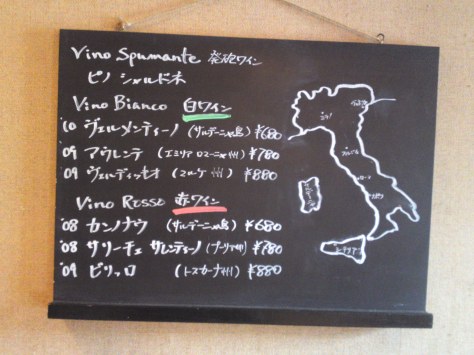 Vino Spumante 発砲ワイン
ピノ シャルドネ
Vino Bianco 白ワイン
'10 ヴェルメンティーノ (サルデーニャ島) ¥680
'09 アウレンテ (エミリア ロマーニャ州) ¥780
'09 ヴェルディッキオ (マルケ州) ¥880
Vino Rosso 赤ワイン
'08 カンノナウ (サルデーニャ島) ¥680
'08 サリーチェ サレンティーノ (プーリア州) ¥780
'09 ピリッロ (トスカーナ州) ¥880